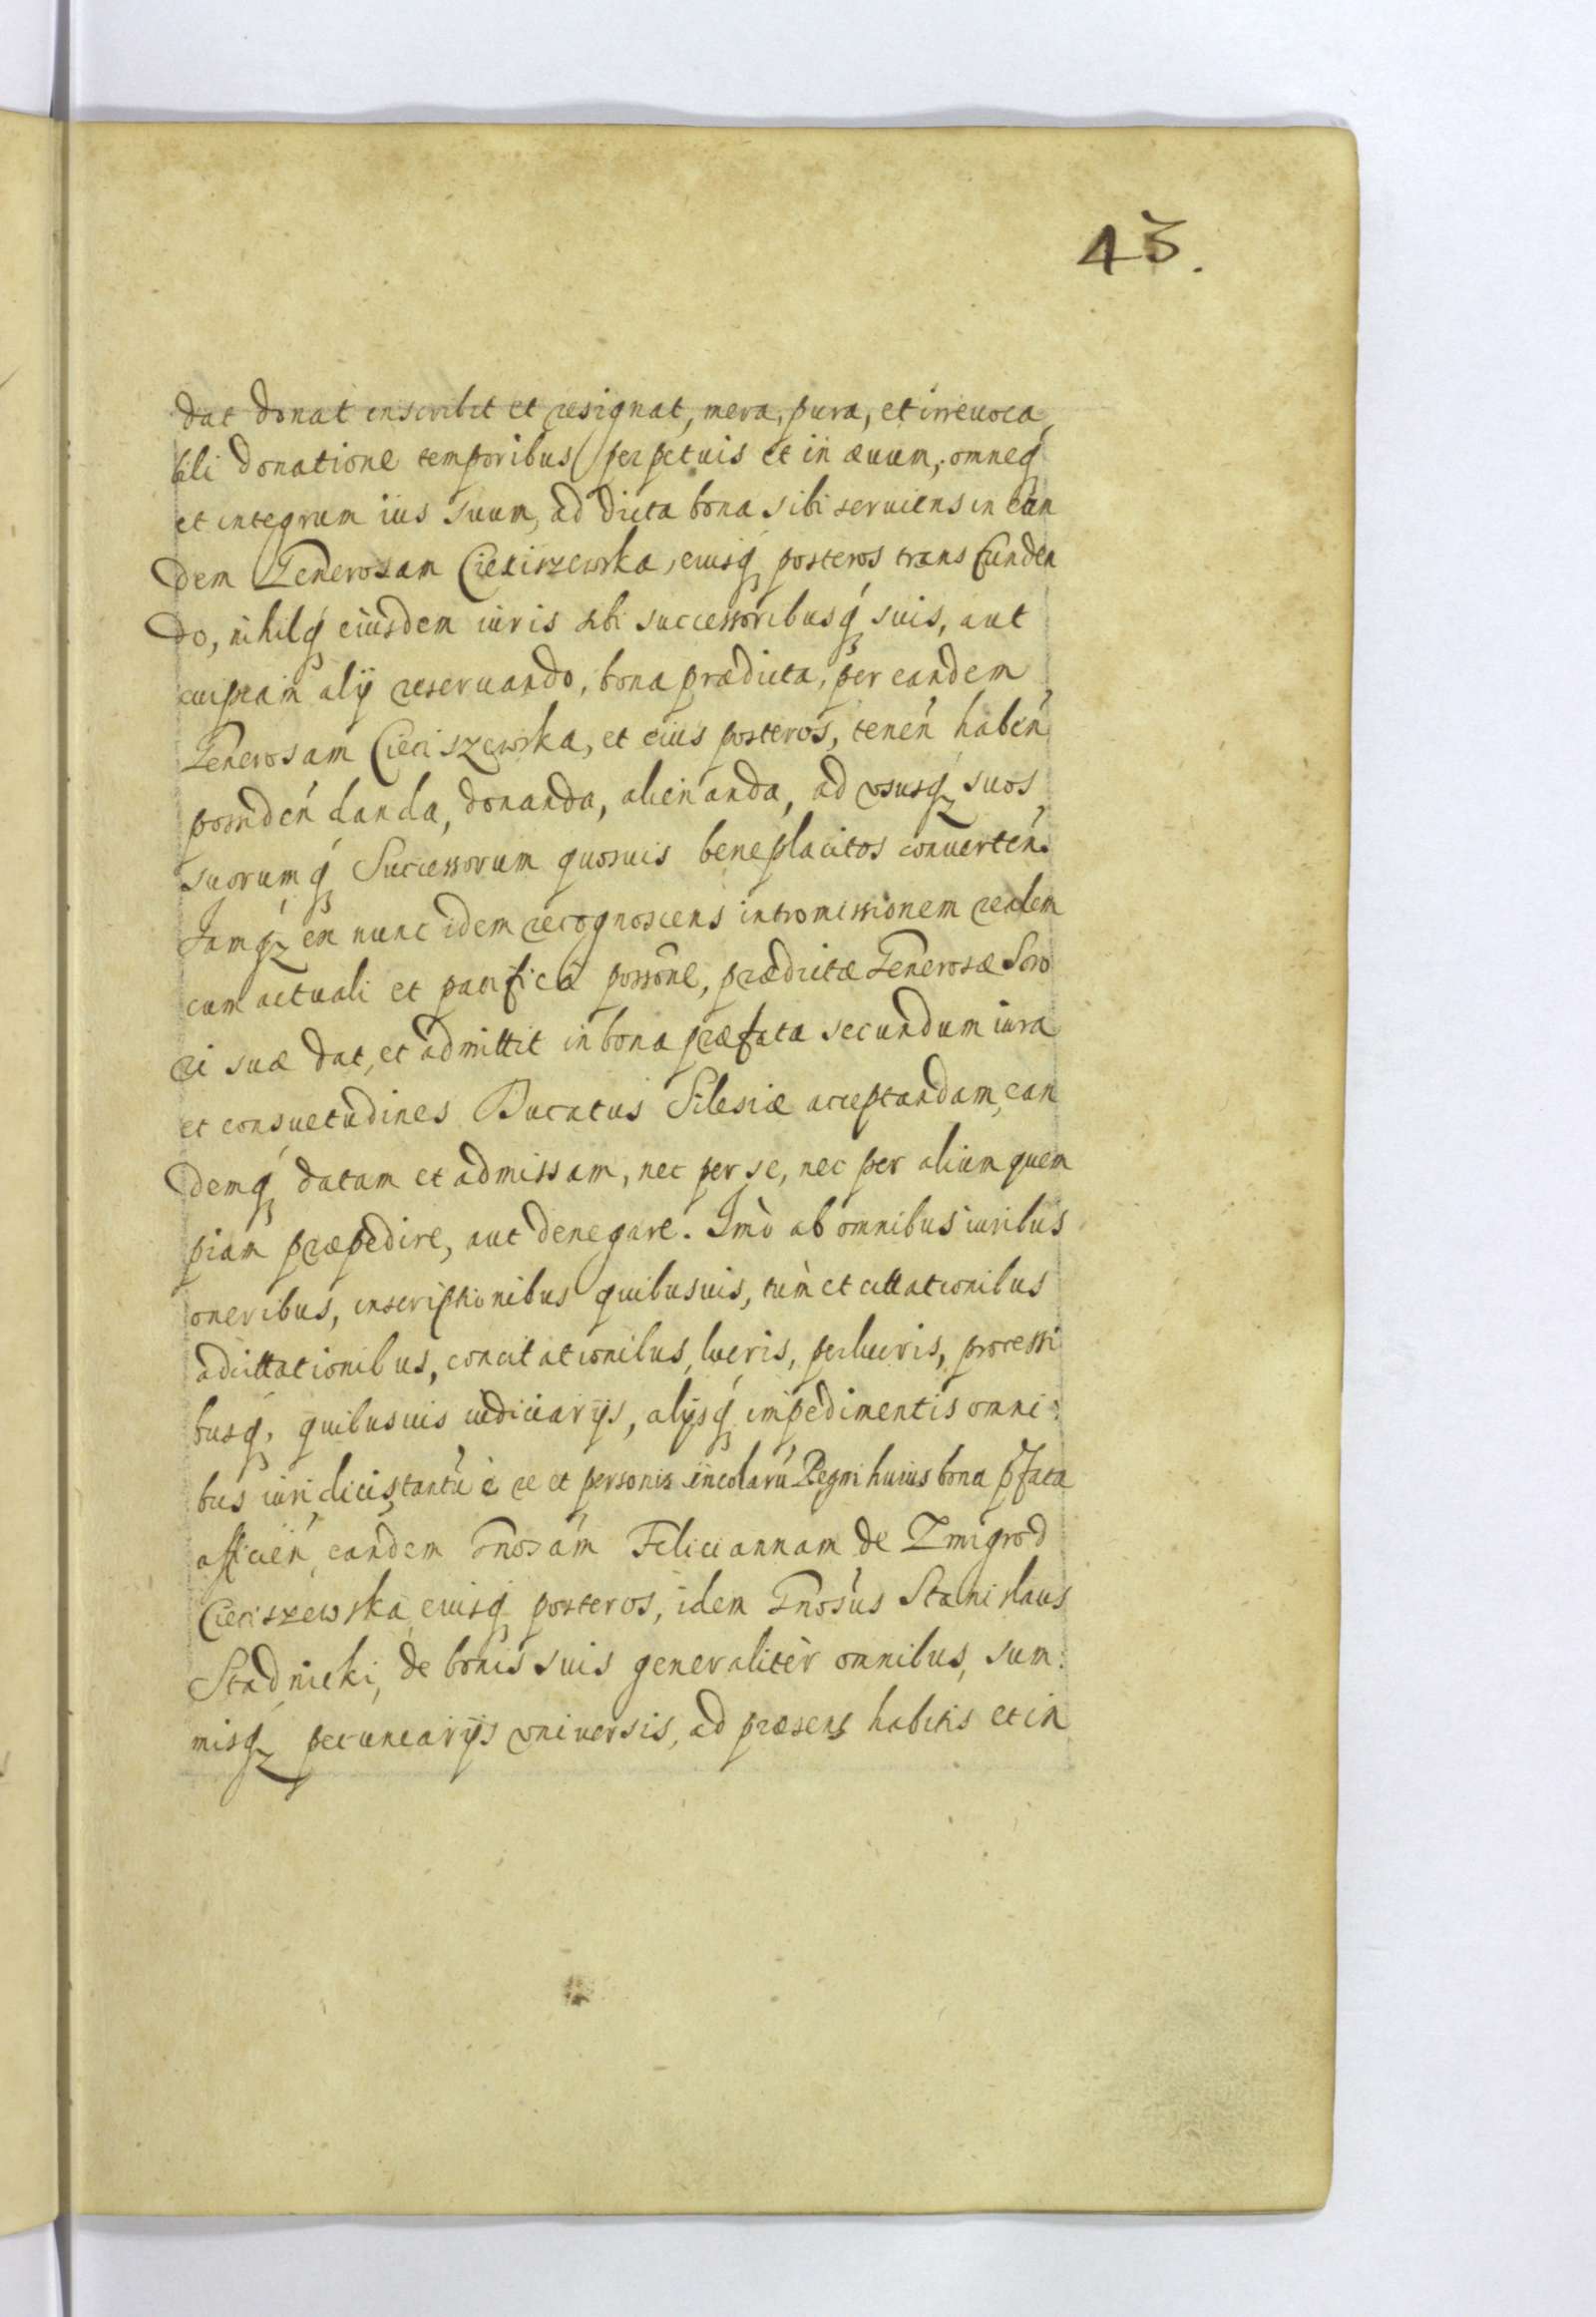 43.
dat donat inscribit et resignat, mera, pura, et irreuoca
bili donatione temporibus perpetuis et in æuum, omneq́
et integrum ius suum, ad dicta bona sibi seruiens in ean
dem Generosam Cieciszewska, eiusq́ posteros transfunden
do, nihilq́ eiusdem iuris sibi successoribusq́ suis, aut
cuipiam alij reseruando, bona prædicta, per eandem
Generosam Cieciszewska, et eius posteros, tenen̄ haben̄
possiden̄ danda, donanda, alienanda, ad vsusq́ suos
suorumq́ Successorum quosuis beneplacitos conuerten̄.
Jamq́ ex nunc idem recognoscens intromissionem realem
cum actuali et pacifica posson̄e, prædictæ Generosæ Soro
ri suæ dat, et admittit in bona præfata secundum iura
et consuetudines Ducatus Silesiæ acceptandam, ean
demq́ datam et admissam, nec per se, nec per alium quem
piam præpedire, aut denegare. Imò ab omnibus iuribus
oneribus, inscriptionibus quibusuis, tùm et cittationibus
adcittationibus, concitationibus, lucris, perlucris, processi
busq́, quibusuis iudiciarijs, alijsq́ impedimentis omni:
bus iuridicis, tantū è re et personis incolarū Regni huius bona p̄fata
afficien̄, eandem Gnosam Feliciannam de Zmigrod
Cieciszewska, eiusq́ posteros, idem Gnosus Stanislaus
Stadnicki, de bonis suis generalitèr omnibus, sum:
misq́ pecuniarijs vniuersis, ad præsens habitis et in